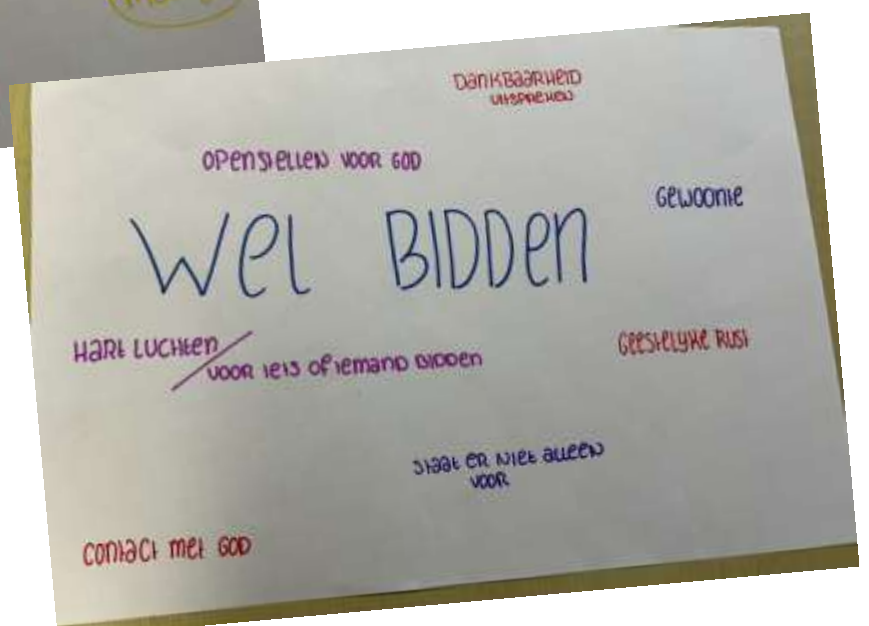 DANKBAARHEID
UITSPREKEN
OPENSTELLEN VOOR GOD
GEWOONTE
WEL BIDDEN
HART LUCHTEN
VOOR IETS OF IEMAND BIDDEN
GEESTELYKE RUST
STAAT ER NIET ALLEEN
VOOR
CONTACT MET GOD